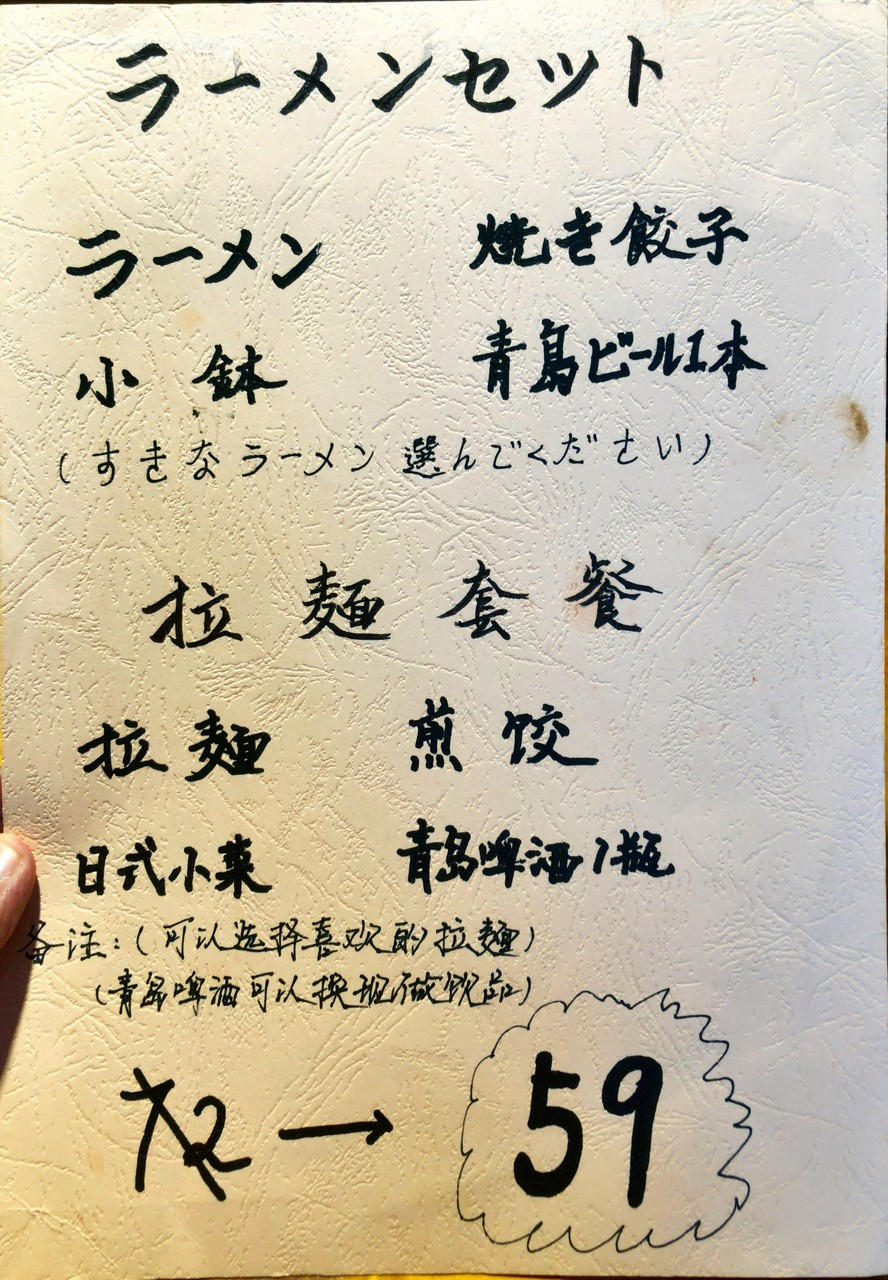 ラーメンセット
ラーメン 焼き餃子
小鉢 青島ビール1本
(すきなラーメン選んでください)
拉麺套餐
拉麺 煎饺
日式小菜 青岛啤酒1瓶
备注:(可以选择喜欢的拉麺)
(青岛啤酒可以换现做饮品)
72 → 59